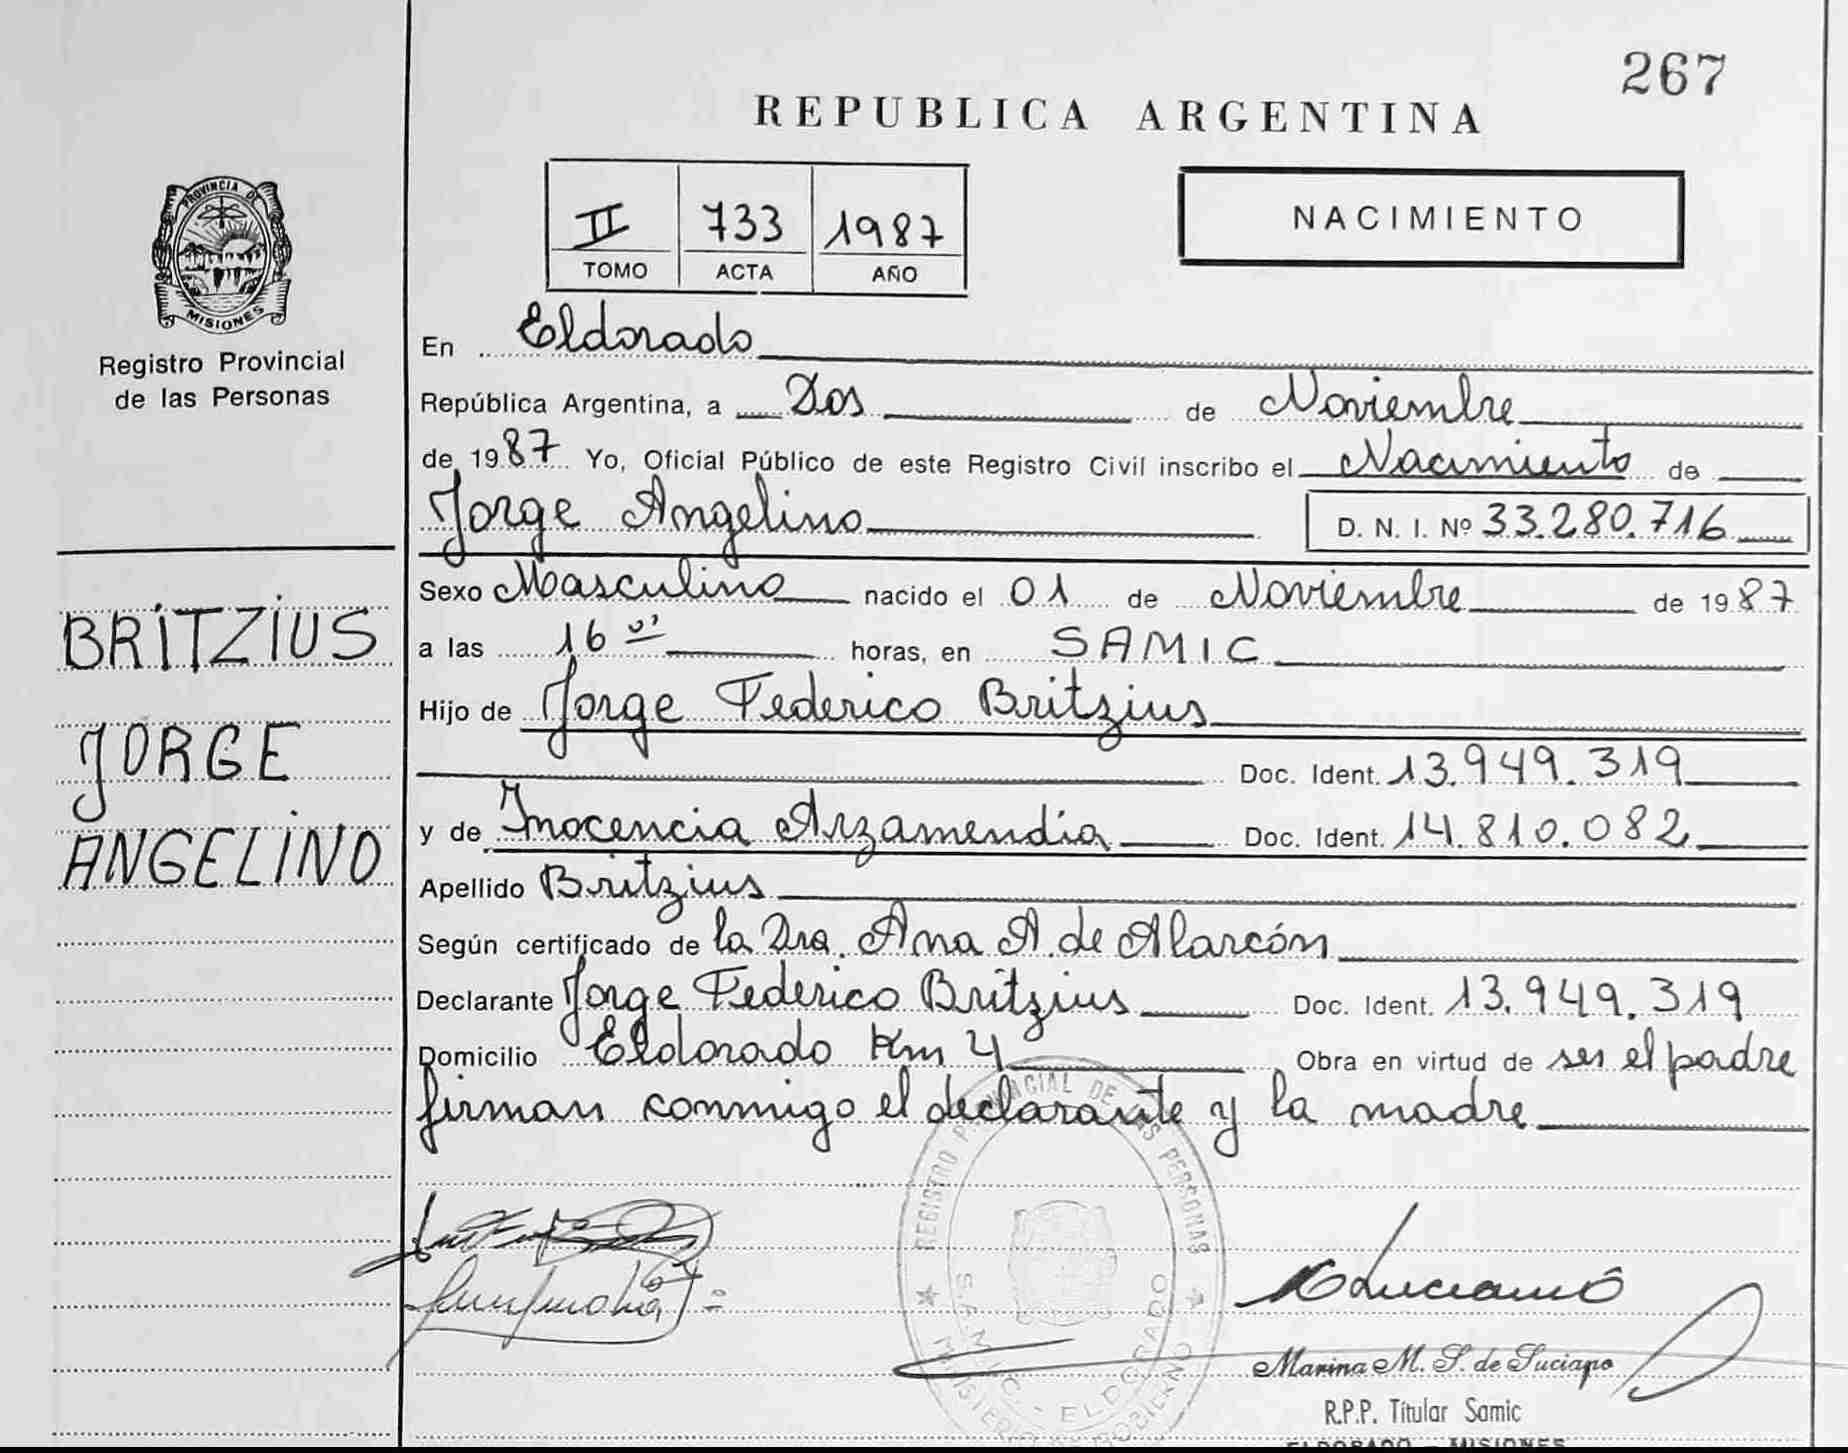 267
REPUBLICA ARGENTINA
PROVINCIA DE
MISIONES
Registro Provincial
de las Personas
II 733 1987
TOMO ACTA AÑO
NACIMIENTO
En Eldorado
República Argentina, a Dos de Noviembre
de 1987 Yo, Oficial Público de este Registro Civil inscribo el Nacimiento de
Jorge Angelino D. N. I. Nº 33.280.716
Sexo Masculino nacido el 01 de Noviembre de 1987
BRITZIUS
a las 16 horas, en SAMIC
Hijo de Jorge Federico Britzius
JORGE
Doc. Ident. 13.949.319
y de Inocencia Arzamendia Doc. Ident. 14.810.082
ANGELINO
Apellido Britzius
Según certificado de la Dra. Ana A. de Alarcón
Declarante Jorge Federico Britzius Doc. Ident. 13.949.319
Domicilio Eldorado Km 4 Obra en virtud de ser el padre
firman conmigo el declarante y la madre
REGISTRO PROVINCIAL DE LAS PERSONAS
S.A.M.I.C. - ELDORADO
MINISTERIO DE GOBIERNO
Marina M. S. de Luciano
R.P.P. Titular Samic
ELDORADO - MISIONES